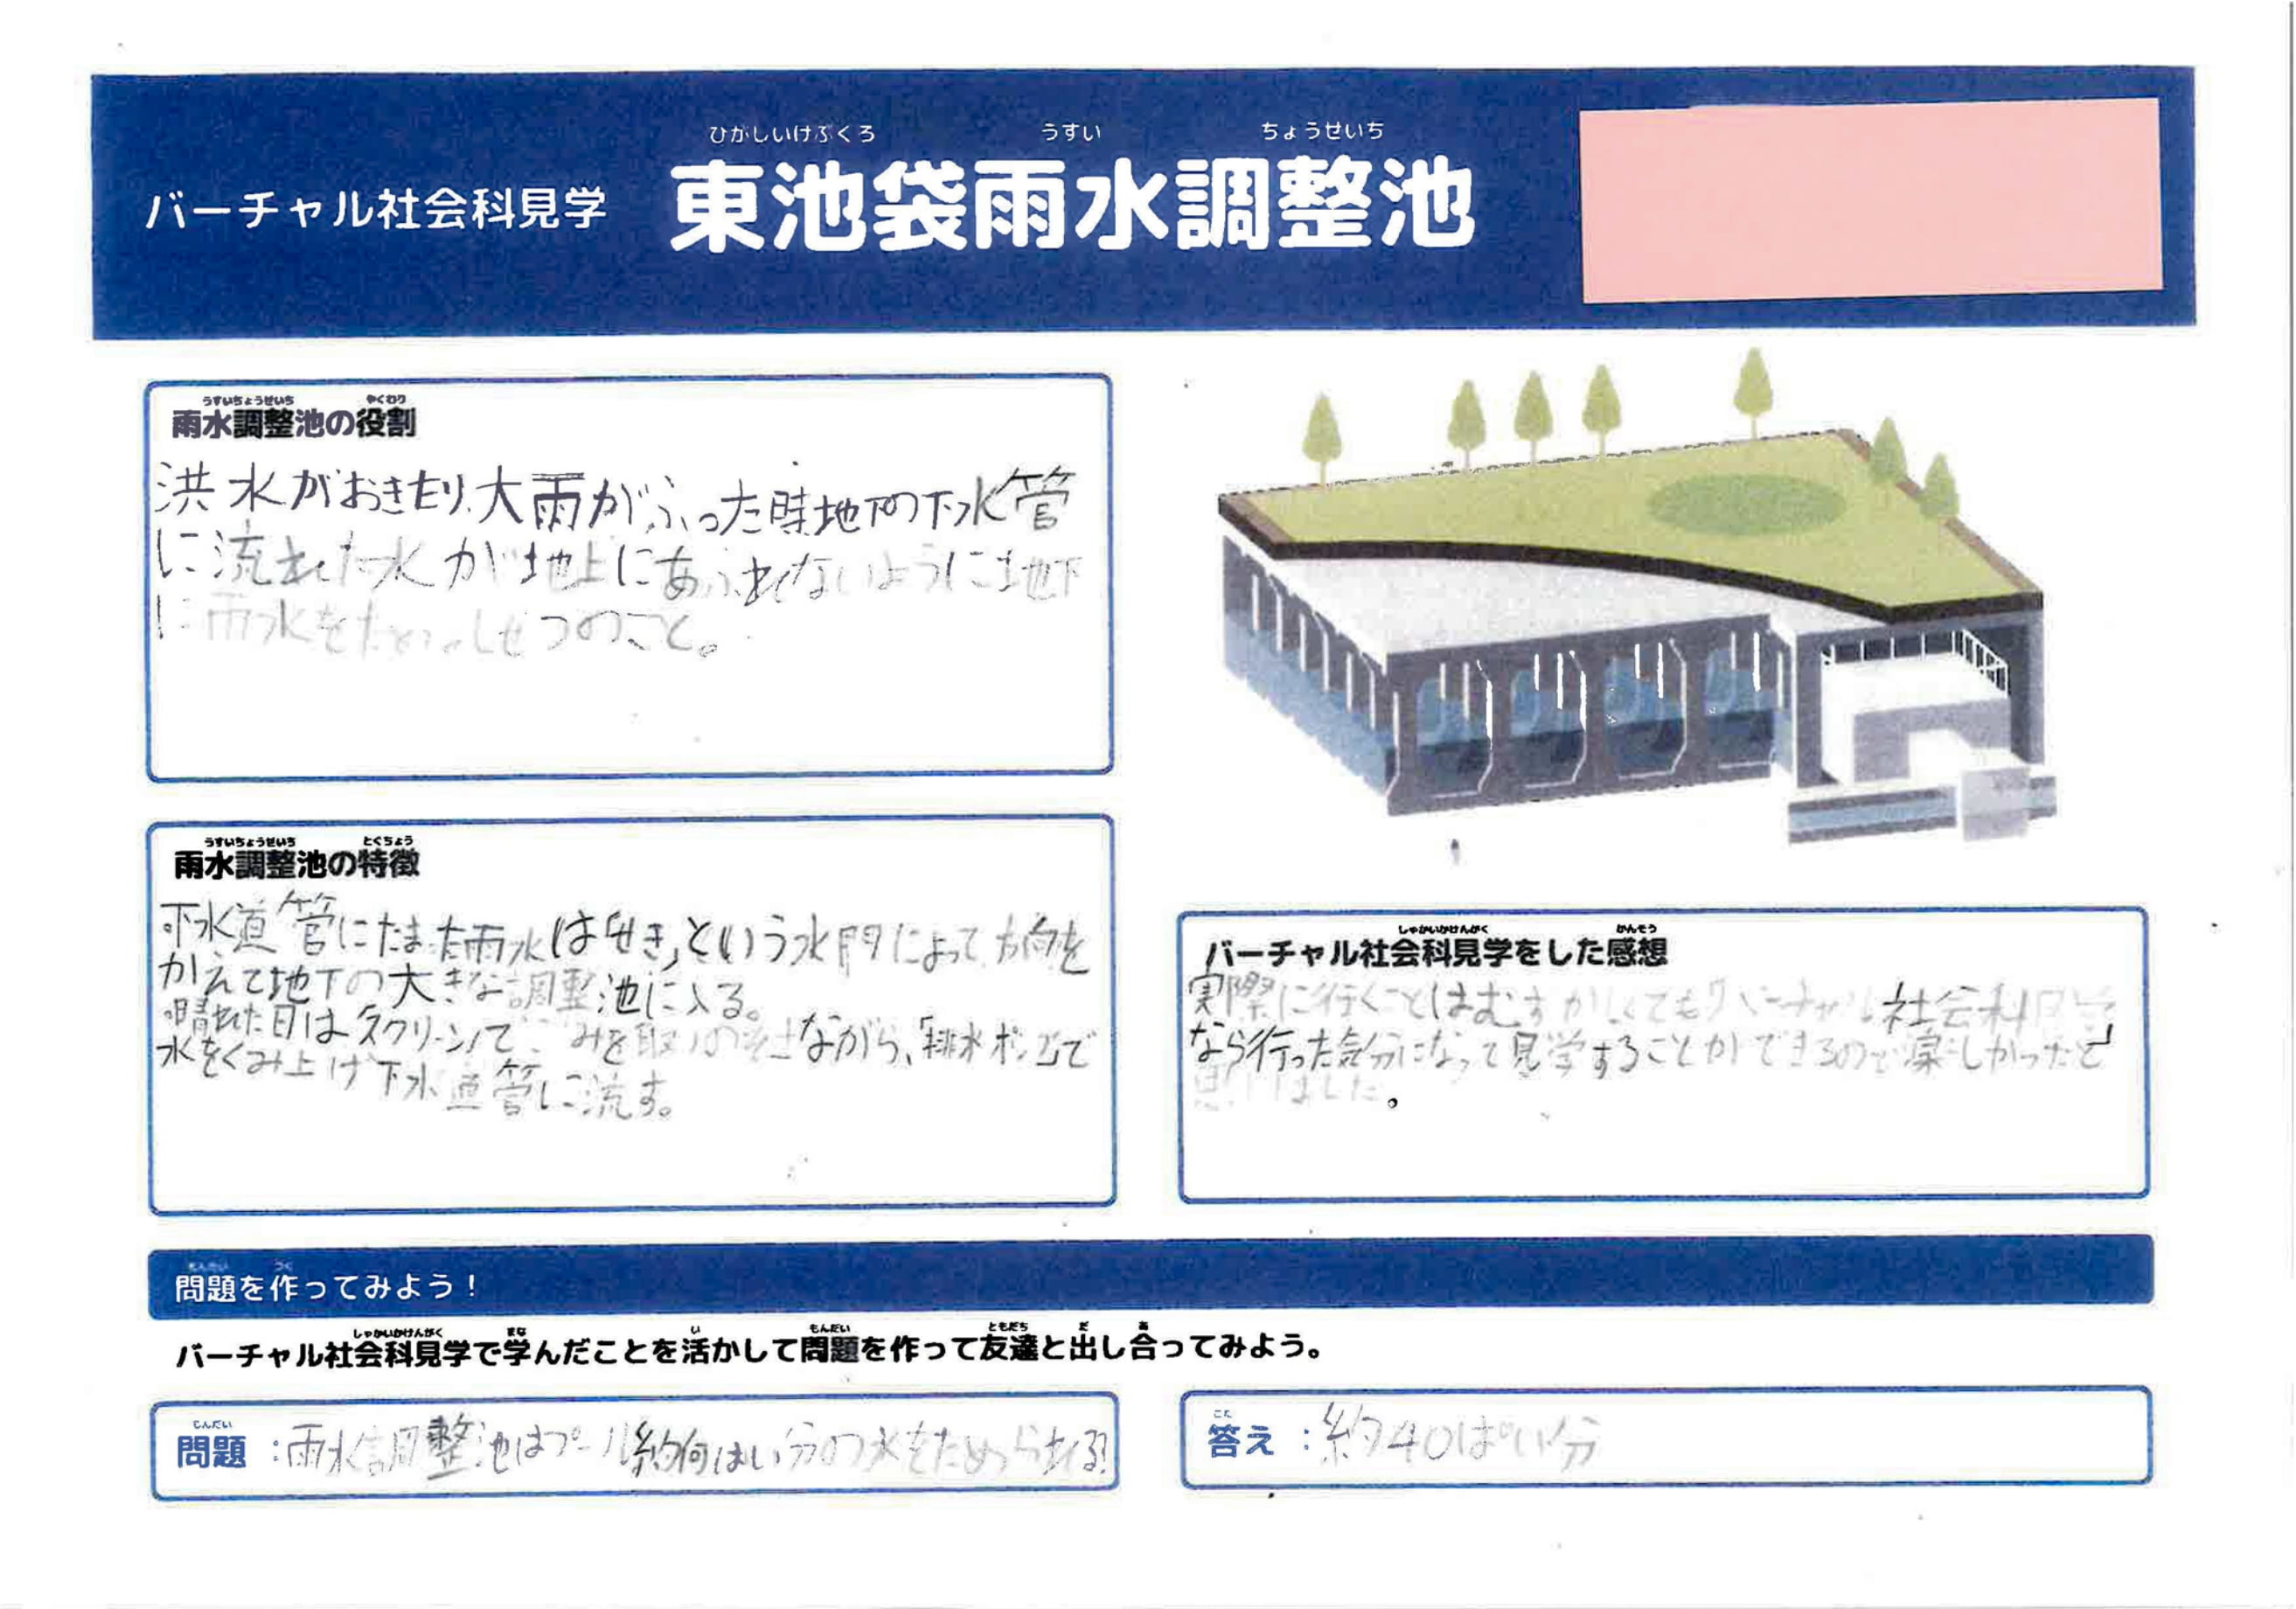 ひがしいけぶくろ うすい ちょうせいち
バーチャル社会科見学 東池袋雨水調整池
うすいちょうせいち やくわり
雨水調整池の役割
洪水がおきたり、大雨がふった時地下の下水管
に流れた水が地上にあふれないように地下
に雨水をためるしせつのこと。
うすいちょうせいち とくちょう
雨水調整池の特徴
下水道管にたまった雨水は「せき」という水門によって方向を
かえて地下の大きな調整池に入る。
晴れた日はスクリーンでごみを取りのぞきながら、「排水ポンプ」で
水をくみ上げ下水道管に流す。
しゃかいかけんがく かんそう
バーチャル社会科見学をした感想
実際に行くことはむずかしくても「バーチャル社会科見学」
なら行った気分になって見学することができるので楽しかったと
思いました。
もんだい つく
問題を作ってみよう！
しゃかいかけんがく まな い もんだい ともだち だ あ
バーチャル社会科見学で学んだことを活かして問題を作って友達と出し合ってみよう。
もんだい
問題：雨水調整池はプール約何はい分の水をためられる?
こた
答え：約40ぱい分